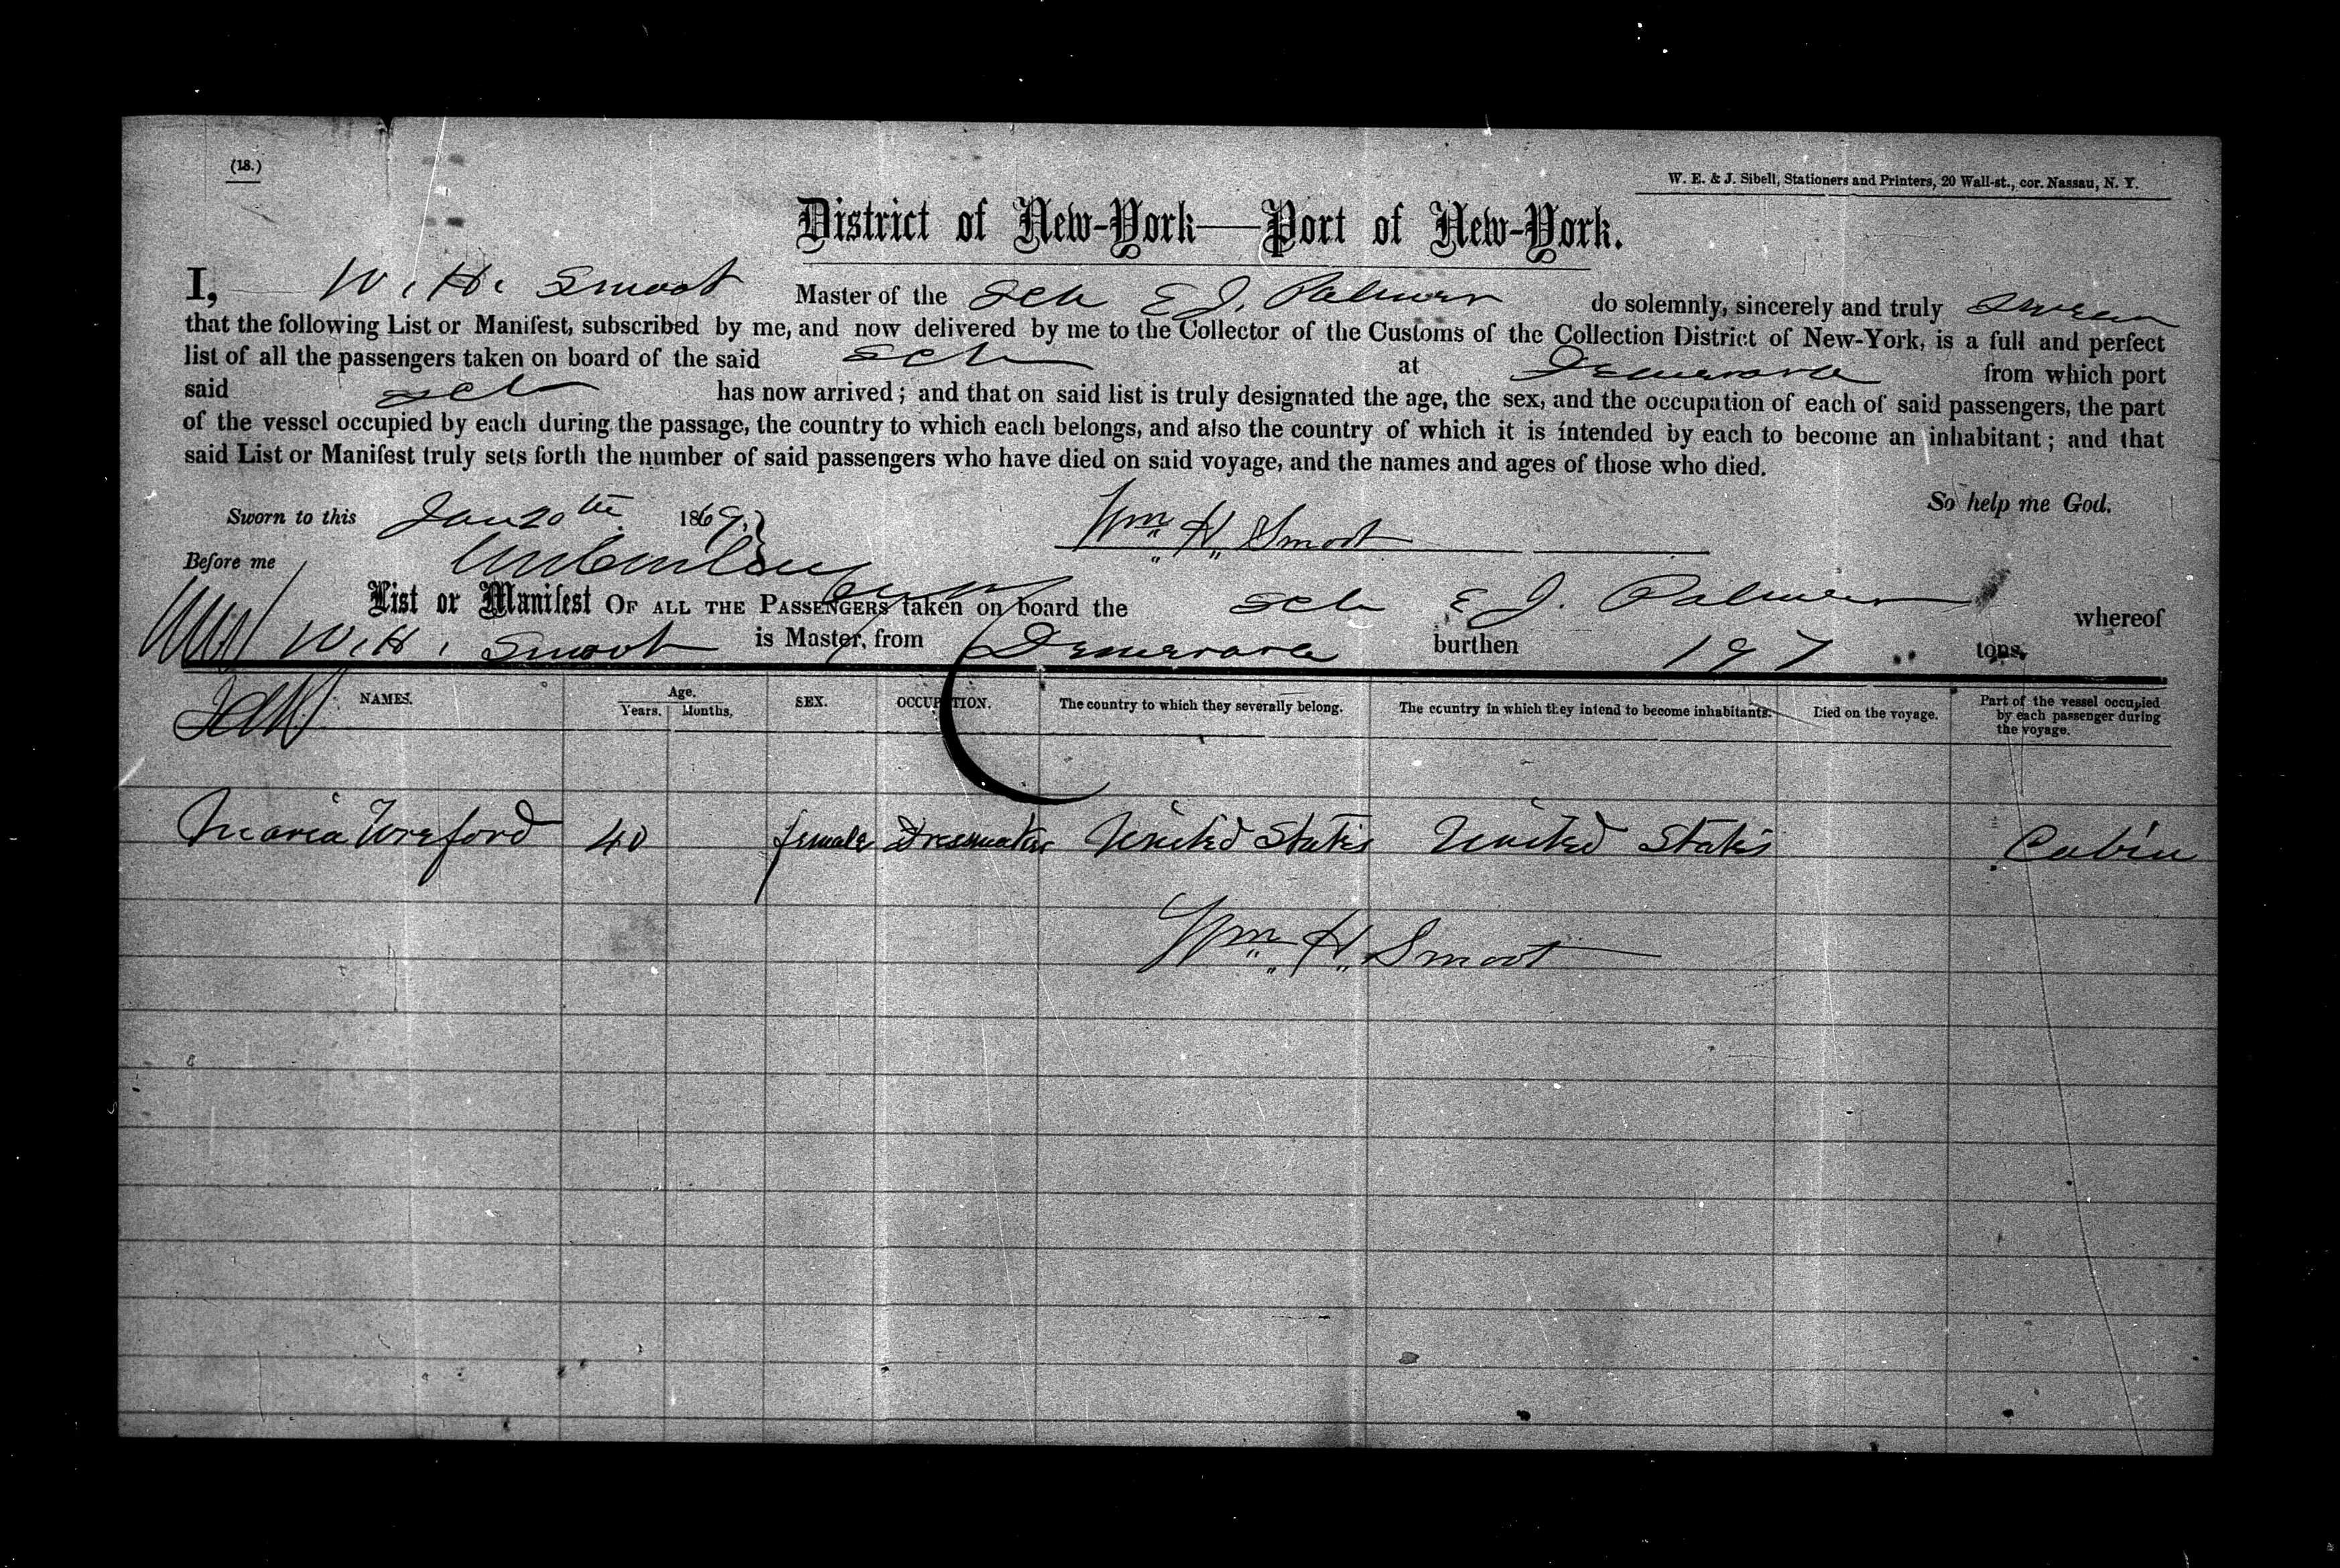 (18.)
W. E. & J. Sibell, Stationers and Printers, 20 Wall-st., cor. Nassau, N. Y.
District of New-York—Port of New-York.
I, W. H. Smoot Master of the Sch E J. Palmer do solemnly, sincerely and truly swear
that the following List or Manifest, subscribed by me, and now delivered by me to the Collector of the Customs of the Collection District of New-York, is a full and perfect
list of all the passengers taken on board of the said sch at Demerara from which port
said sch has now arrived; and that on said list is truly designated the age, the sex, and the occupation of each of said passengers, the part
of the vessel occupied by each during the passage, the country to which each belongs, and also the country of which it is intended by each to become an inhabitant; and that
said List or Manifest truly sets forth the number of said passengers who have died on said voyage, and the names and ages of those who died.
So help me God.
Sworn to this Jan 20th 1869. Wm. H. Smoot
Before me
List or Manifest OF ALL THE PASSENGERS taken on board the sch E J. Palmer whereof
W. H. Smoot is Master, from Demerara burthen 197 tons.
NAMES. Age. Years. Months. SEX. OCCUPATION. The country to which they severally belong. The country in which they intend to become inhabitants. Died on the voyage. Part of the vessel occupied by each passenger during the voyage.
Maria Wreford 40 female Dressmaker United States United States Cabin
Wm. H. Smoot